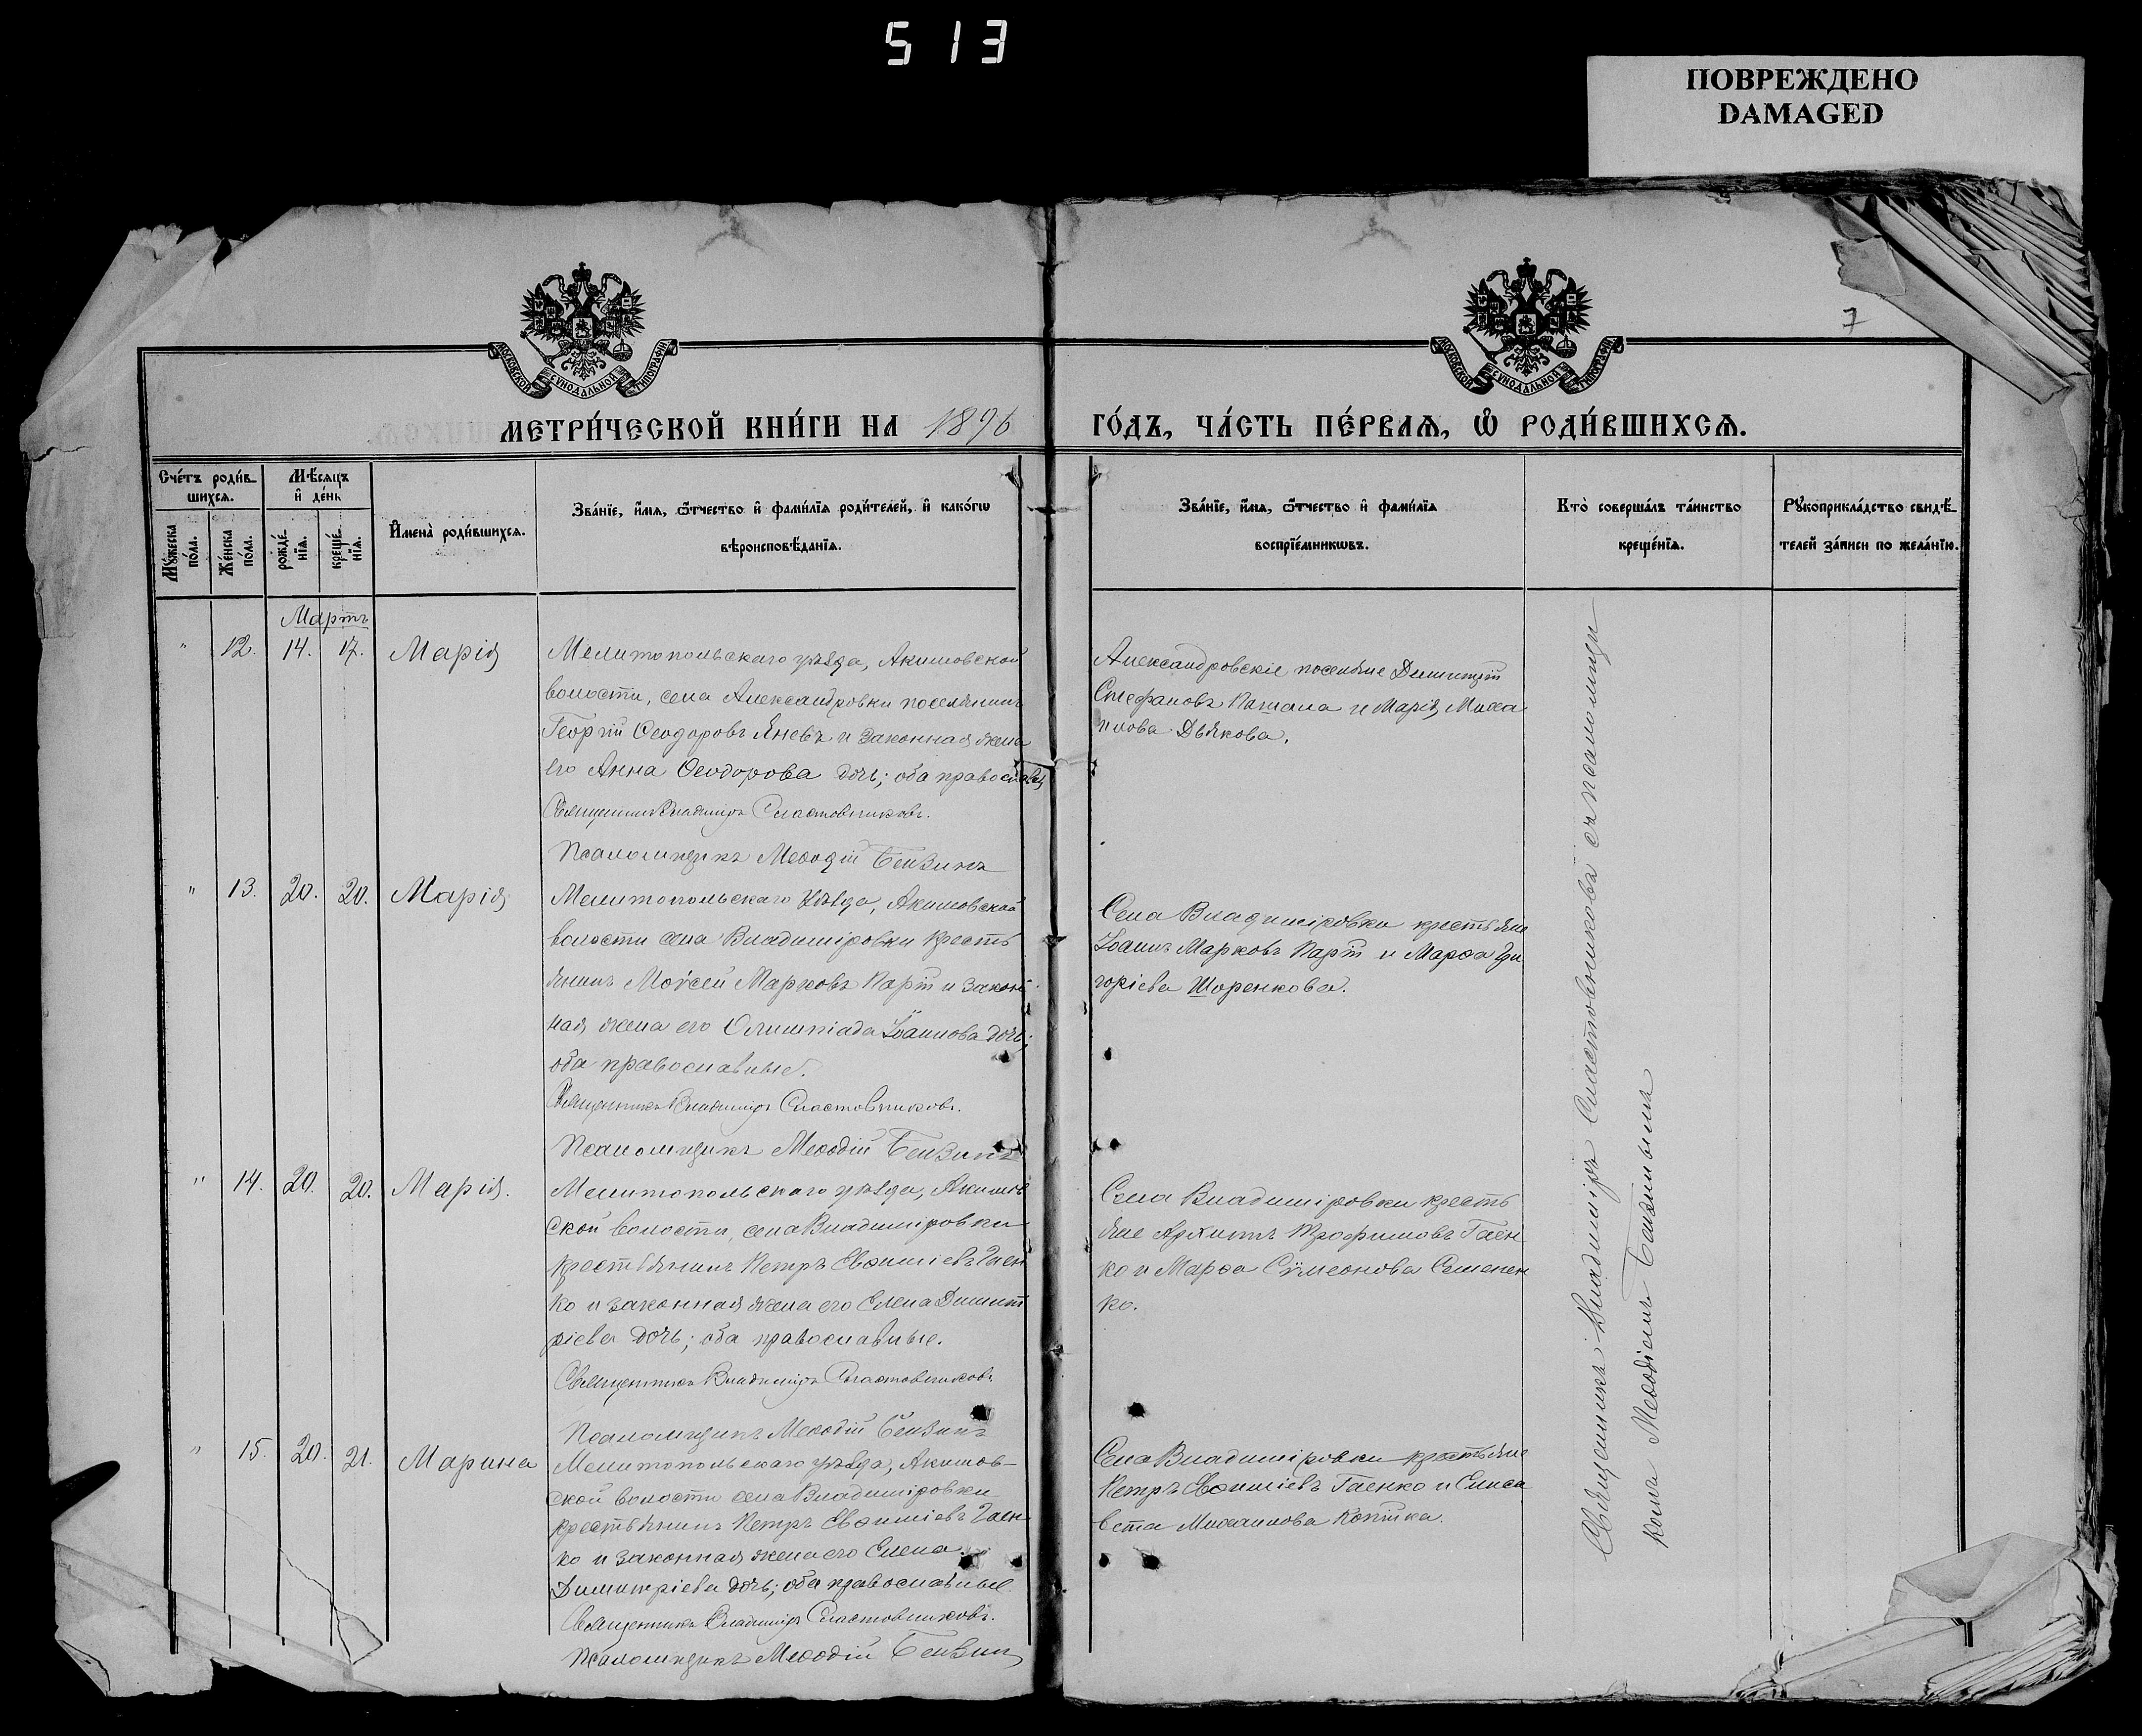 513
ПОВРЕЖДЕНО
DAMAGED
7
МОСКОВСКОЙ СѴНОДАЛЬНОЙ ТИПОГРАФІИ
МОСКОВСКОЙ СѴНОДАЛЬНОЙ ТИПОГРАФІИ
МЕТРИ́ЧЕСКОЙ КНИ́ГИ НА 1896
ГО́ДЪ, ЧА́СТЬ ПЕ́РВАѦ, Ѡ РОДИ́ВШИХСѦ.
Сче́тъ роди́в-
шихсѧ.
Мѣ́сѧцъ
и҆ де́нь
Мꙋ́жеска
по́ла.
Же́нска
по́ла.
рожде́-
нїѧ.
креще́-
нїѧ.
И҆мена̀ роди́вшихсѧ.
Зва́нїе, и҆́мѧ, ѻ҆́тчество и҆ фами́лїѧ роди́телей, и҆ како́гѡ
вѣроисповѣ́данїѧ.
Зва́нїе, и҆́мѧ, ѻ҆́тчество и҆ фами́лїѧ
воспрїе́мникѡвъ.
Кто̀ соверша́лъ та́инство
креще́нїѧ.
Рꙋкоприкла́дство свидѣ́-
телей за́писи по жела́нїю.
Мартъ
" 12. 14. 17. Марія
Мелитопольскаго уѣзда, Акимовской
волости, села Александровки поселянинъ
Георгій Ѳеодоровъ Яневъ и законная жена
его Анна Ѳеодорова дочь; оба православн
Священникъ Владиміръ Сластовниковъ.
Псаломщикъ Меѳодій Бензинъ
Александровскіе поселяне Димитрій
Стефановъ Пашала и Марія Миха
илова Дьякова.
" 13. 20. 20. Марія
Мелитопольскаго Уѣзда, Акимовской
волости села Владиміровки кресть
янинъ Моѵсей Марковъ Парій и закон
ная жена его Олимпіада Іоаннова дочь;
оба православные.
Священникъ Владиміръ Сластовниковъ.
Псаломщикъ Меѳодій Бензинъ
Села Владиміровки крестьяне
Іоаннъ Марковъ Парій и Марѳа Гри
горіева Шоренкова.
" 14. 20. 20. Марія.
Мелитопольскаго уѣзда, Акимов
ской волости, села Владиміровки
крестьянинъ Петръ Евѳиміевъ Гаен
ко и законная жена его Елена Димит
ріева дочь; оба православные.
Священникъ Владиміръ Сластовниковъ
Псаломщикъ Меѳодій Бензинъ
Села Владиміровки кресть
яне Архиппъ Трофимовъ Гаен
ко и Марѳа Сѵмеонова Семенен
ко.
" 15. 20. 21. Марина
Мелитопольскаго уѣзда, Акимов-
ской волости села Владиміровки
крестьянинъ Петръ Евѳиміевъ Гаен
ко и законная жена его Елена
Димитріева дочь; оба православные
Священникъ Владиміръ Сластовниковъ.
Псаломщикъ Меѳодій Бензин
Села Владиміровки крестьяне
Петръ Евѳиміевъ Гаенко и Елиса
вета Михаилова
Священникъ Владиміръ Сластовниковъ съ псаломщи
комъ Меѳодіемъ Бензинымъ